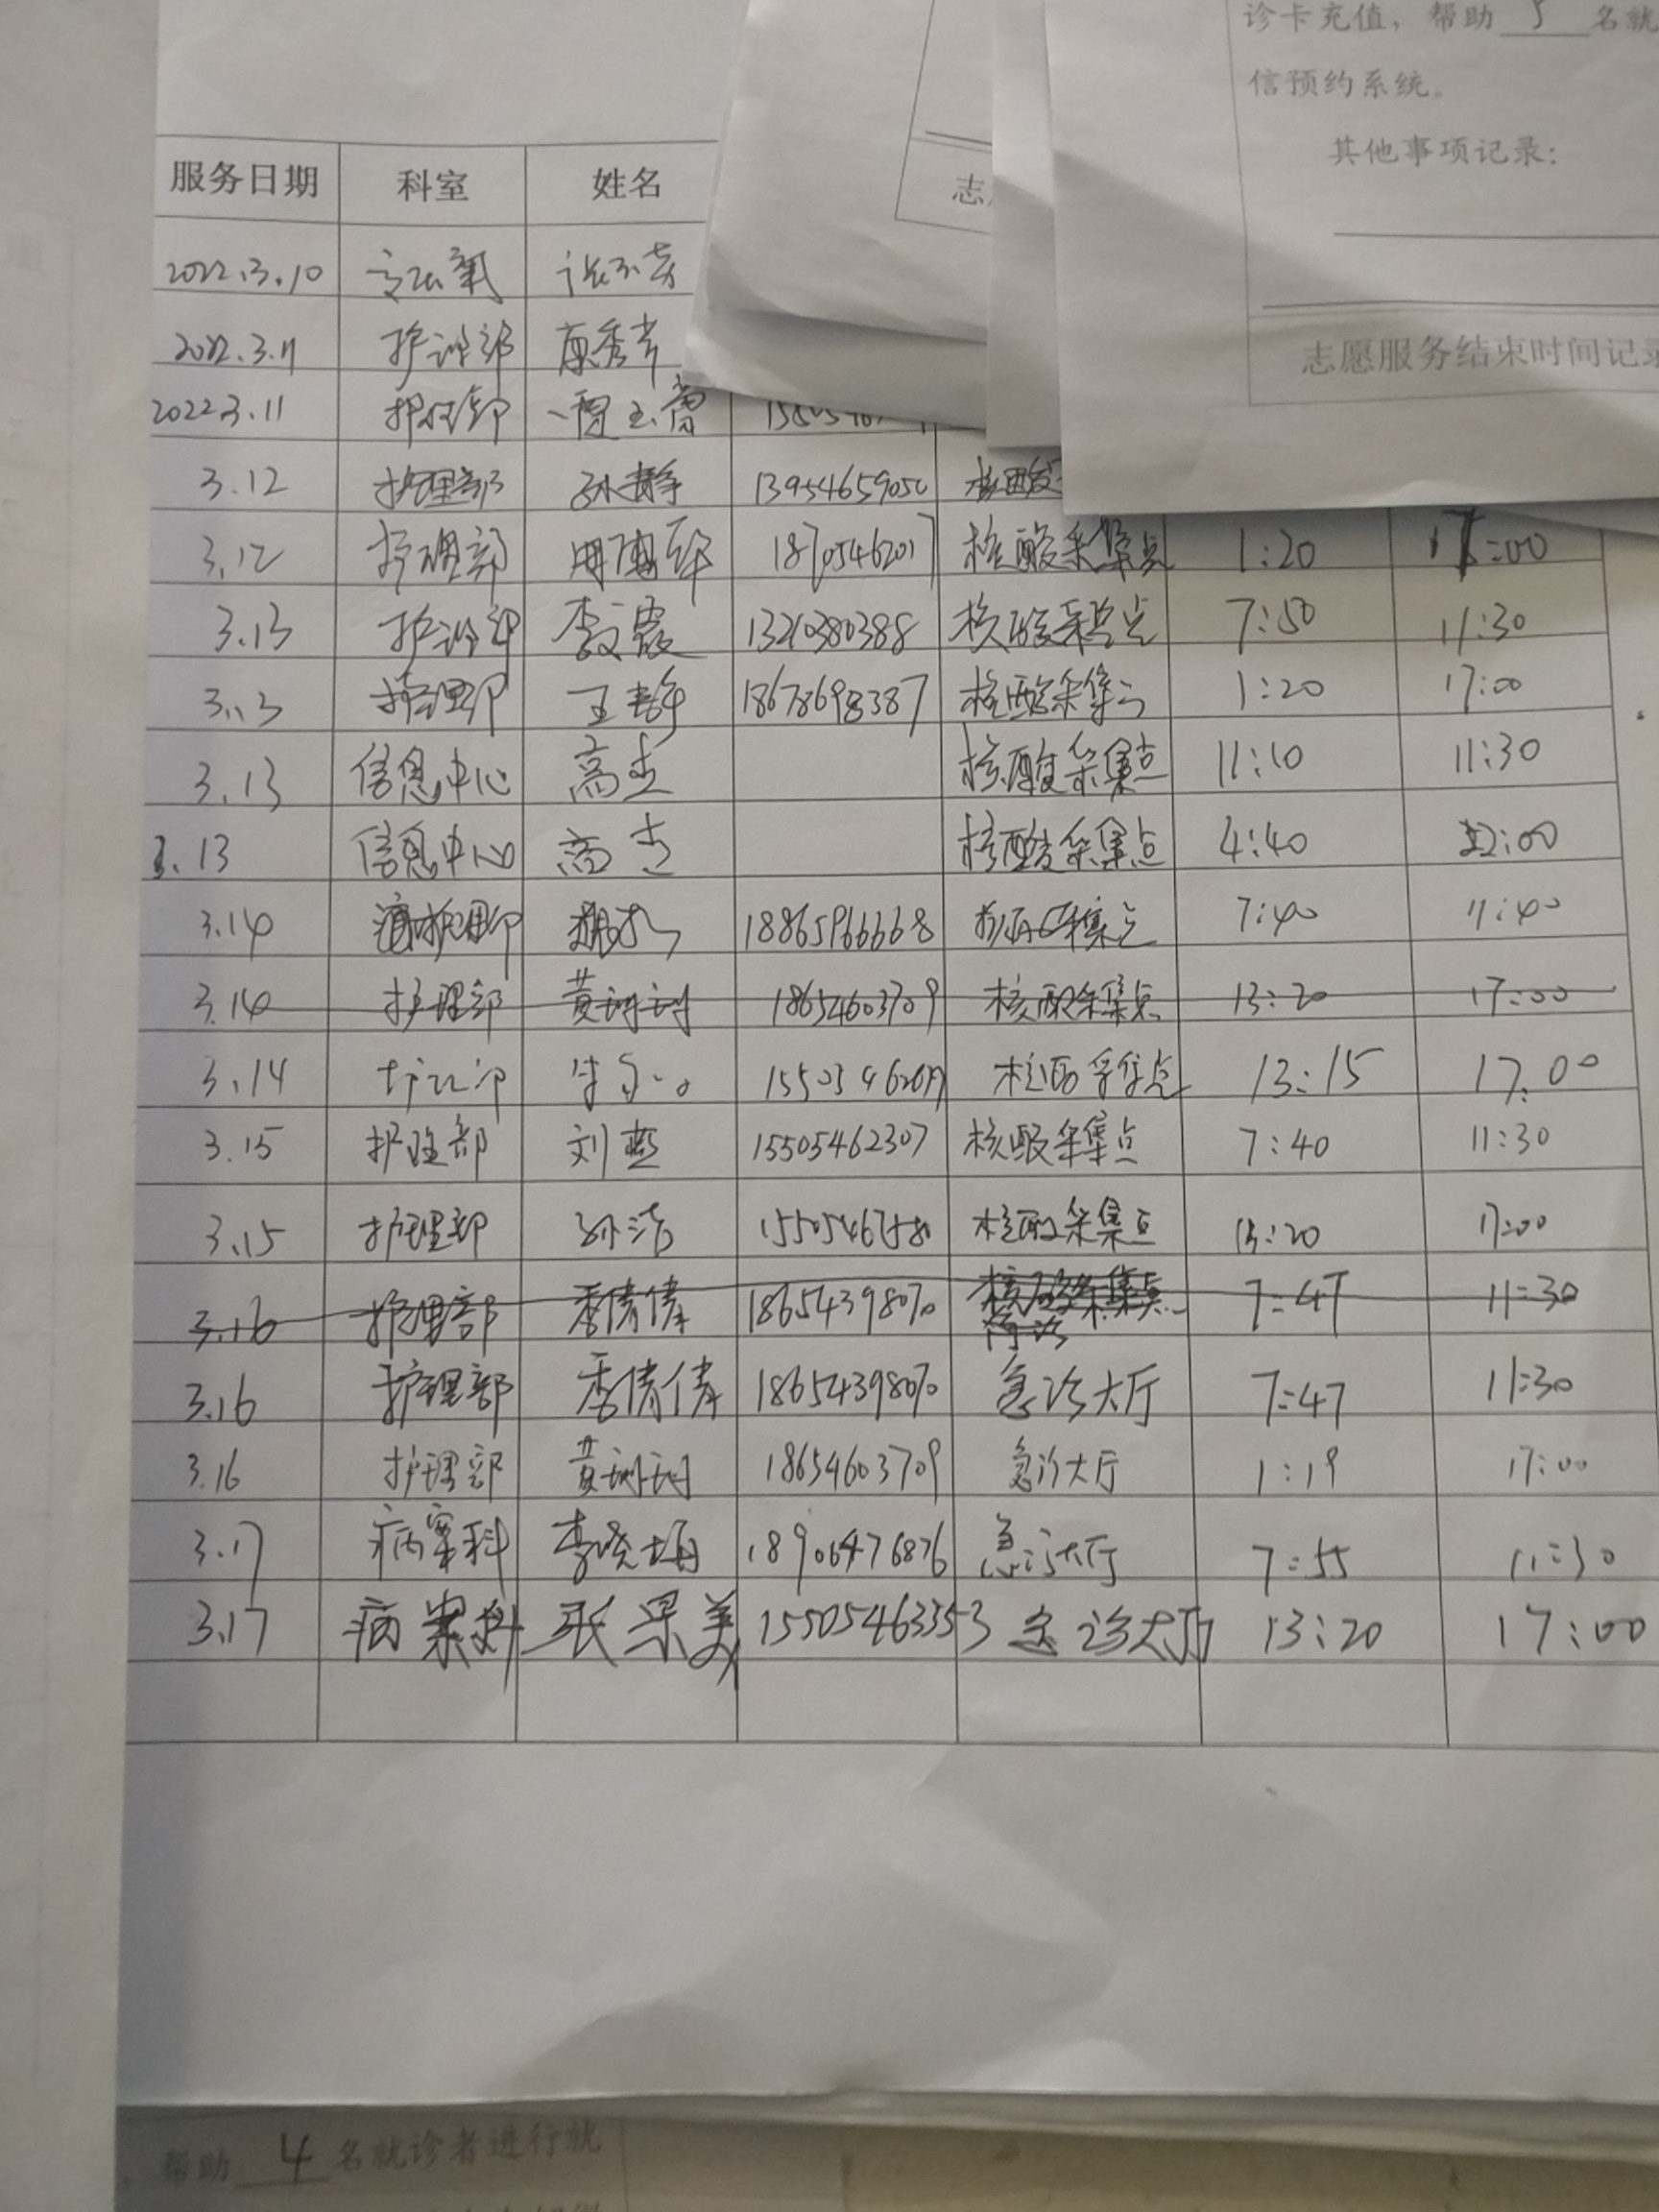 诊卡充值，帮助 5 名就
信预约系统。
其他事项记录：
志愿服务结束时间记录
志
服务日期 科室 姓名
2022.3.10 高压氧
2022.3.11 护理部 康秀芳
2022 3.11 护理部 贾玉 
3.12 护理部 孙静 1395465905 核酸
3.12 护理部 18705462017 核酸采集点 1:20 17:00
3.13 护理部 李霞 13210380388 核酸采集点 7:50 11:30
3.13 护理部 王静 18678698387 核酸采集点 1:20 17:00
3.13 信息中心 高杰 核酸采集点 11:10 11:30
3.13 信息中心 高杰 核酸采集点 4:40 22:00
3.14 护理部 18865966668 核酸采集点 7:40 11:40
3.14 护理部 黄珊珊 18654603709 核酸采集点 13:20 17:00
3.14 护理部 核酸采集点 13:15 17:00
3.15 护理部 刘燕 15505462307 核酸采集点 7:40 11:30
3.15 护理部 孙洁 核酸采集点 13:20 17:00
3.16 护理部 季倩倩 18654398070 核酸采集点 7:47 11:30
3.16 护理部 季倩倩 18654398070 急诊大厅 7:47 11:30
3.16 护理部 黄珊珊 18654603709 急诊大厅 1:19 17:00
3.17 病案科 李晓梅 18906476876 急诊大厅 7:55 11:30
3.17 病案科 张杲美 15505463353 急诊大厅 13:20 17:00
帮助 4 名就诊者进行就